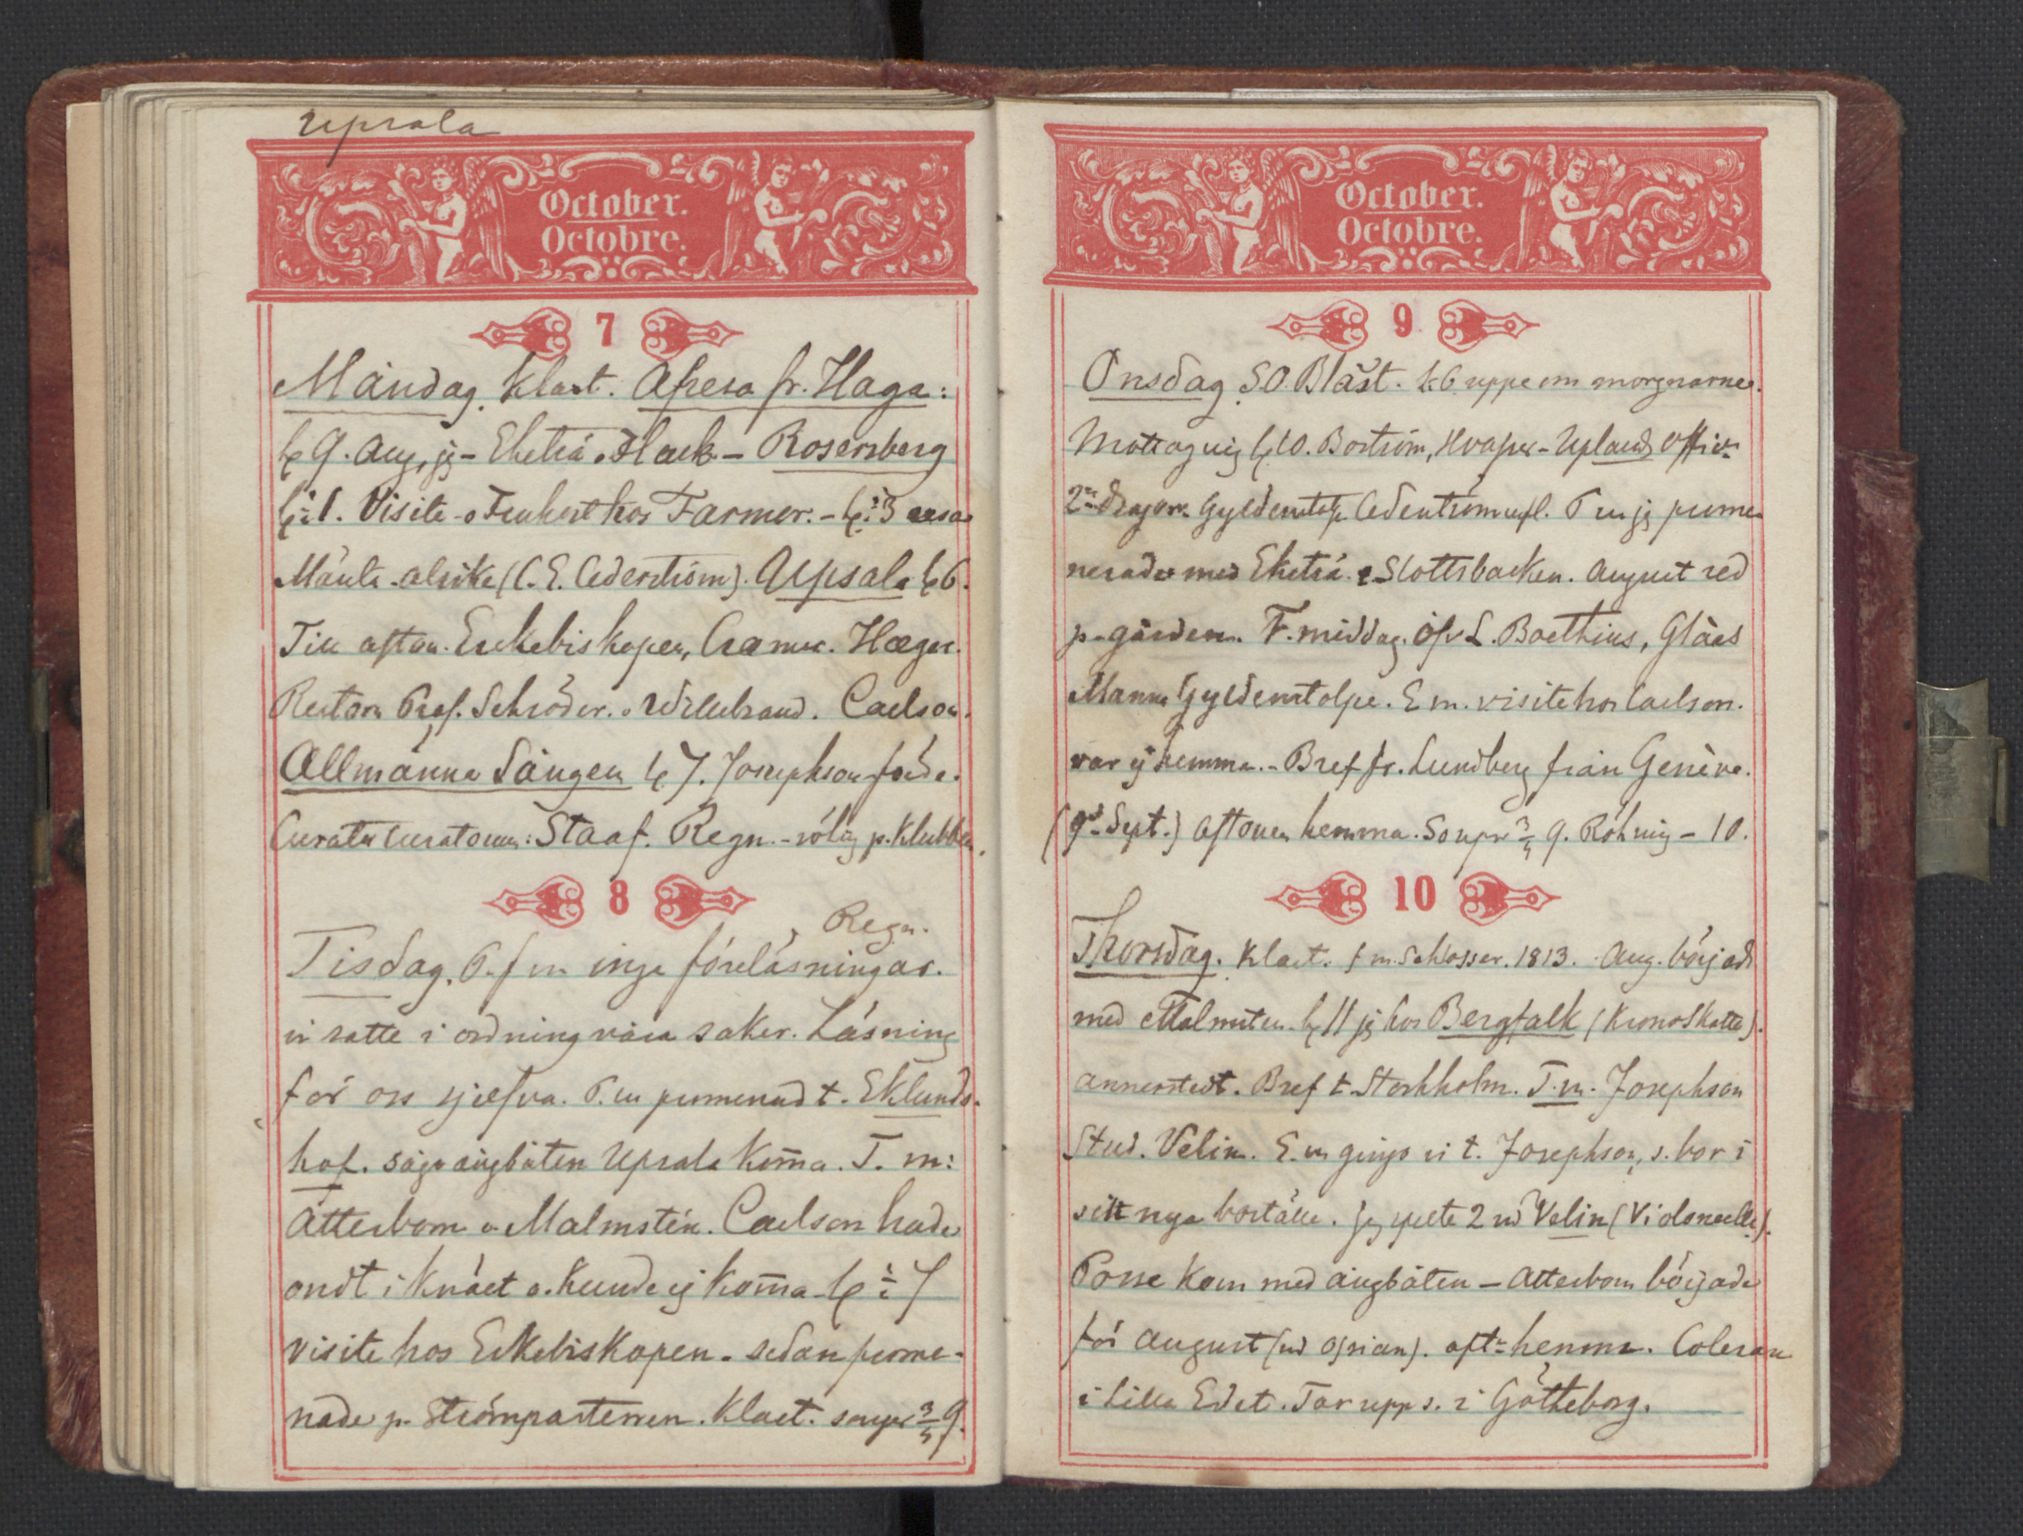 Upsala
October.
Octobre.
7
Måndag. Klart. Afresa fr. Haga:
9. Aug, jg – Eketrä o Hack – Rosersberg
1. Visite o Frukost hos Farmor. – 3 resa
Märsta - alsike (C. E. Cederström). Upsala 6.
Till afton. Erkebiskopen, Cramér. Hæger.
Rectorn Prof. Schröder. o Willebrand. Carlson.
Allmänna Sången 7. Josephson förde.
Curator Curatorum: Staaf. Regn. – rölig p. Klubben.
8
Regn.
Tisdag. P. f m inga föreläsningar.
vi satte i ordning våra saker. Läsning
för oss sjelfva. P. m promenad t. Eklunds-
hof. sågo ångbåten Upsala kom̄a. T. m:
Atterbom o Malmstén. Carlson hade
ondt i knäet o. kunde ej kom̄a. 7
visite hos Erkebiskopen. sedan prome-
nade p. Strömparterren. Klart. souper 3/4 9.
October.
Octobre.
9
Onsdag. SO. Blåst. k 6 uppe om morgnarne.
Mottagnig 10. Boström, Hvasser – Uplands offic.
2n Dragon. Gyldenstolpe Cederström m fl. P m jg prome-
nerade med Eketrä. Slottsbacken. August red
p. gården. T. middag. Öfv L. Boëthius, Gläas
Manne Gyldenstolpe. E m. visite hos Carlson.
var ej hemma. – Bref fr. Lundberg från Genève.
(9d Sept.) Aftonen hemma. Souper 3/4 9. Röhnig – 10.
10
Thorsdag. Klart. f m. Schlosser. 1813. Aug. började
med Malmsten. 11 jg hos Bergfalk (Kronoskatte).
Annerstedt. Bref t. Stockholm. T. m. Josephson
Stud. Velin. E. m gingo vi t. Josephson, s. bor i
sitt nya boställe. jg spelte 2 nd Velin (Violoncelle).
Posse kom med ångbåten – Atterbom började
för August (nd Ossian). aftn hemma. Coleran
i Lilla Edet. Tar upp s. i Götheborg.